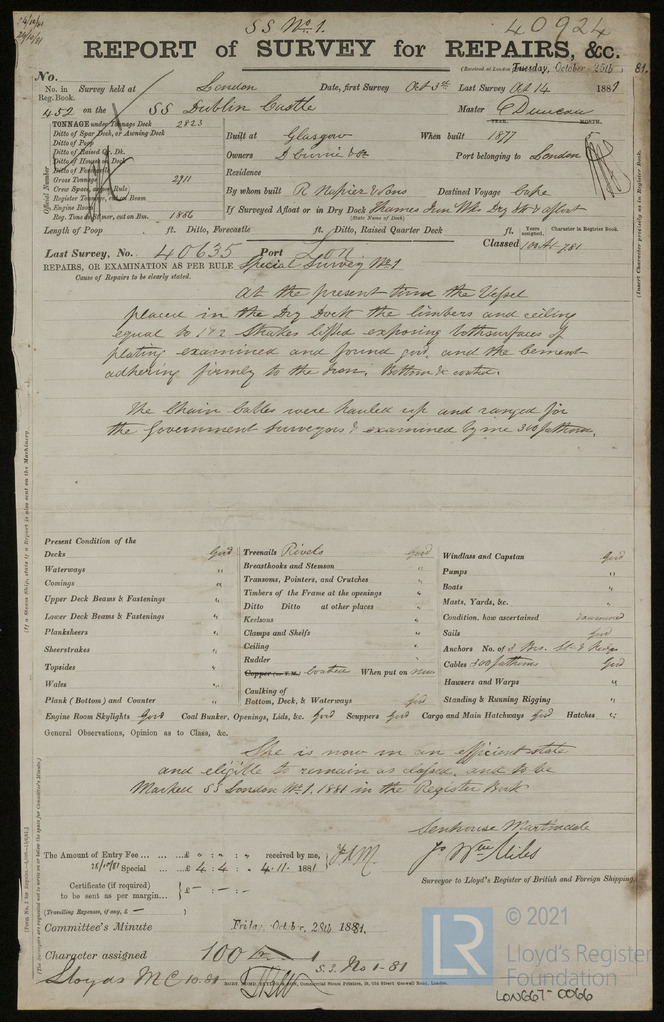 SS No. 1.
40924
24/10/81
REPORT of SURVEY for REPAIRS, &c.
(Received at London Tuesday, October 25th, 81.
No.
No. in Reg. Book. Survey held at London Date, first Survey Oct 3rd Last Survey Oct 14 1881
452 on the SS Dublin Castle Master C Duncan
TONNAGE under Tonnage Deck 2823
Ditto of Spar Deck, or Awning Deck
Ditto of Poop
Ditto of Raised Qr. Dk.
Ditto of House on Deck
Ditto of Forecastle
Gross Tonnage 2911
Crew Space, as per Rule
Register Tonnage, cut on Beam
Engine Room
Reg. Tons as Steamer, cut on Bm. 1856
Official Number
YEAR. MONTH.
Built at Glasgow When built 1877 5
Owners D Currie & Co Port belonging to London
Residence
By whom built R Napier & Sons Destined Voyage Cape
If Surveyed Afloat or in Dry Dock Thames Iron Wks Dry Dk & afloat
(State Name of Dock)
Length of Poop ft. Ditto, Forecastle ft. Ditto, Raised Quarter Deck ft.
Years assigned. Character in Register Book.
Last Survey, No. 40635 Port Lon Classed 100A1 7,81
REPAIRS, OR EXAMINATION AS PER RULE Special Survey No. 1
Cause of Repairs to be clearly stated.
At the present time the Vessel
placed in the Dry Dock the limbers and ceiling
equal to 1 & 2 Strakes lifted exposing both surfaces of
plating examined and found good, and the cement
adhering firmly to the Iron. Bottom &c coated.
The Chain Cables were hauled up and ranged for
the Government Surveyors & examined by me 300 fathoms.
Present Condition of the
Decks Good
Waterways "
Comings "
Upper Deck Beams & Fastenings "
Lower Deck Beams & Fastenings "
Planksheers "
Sheerstrakes "
Topsides "
Wales "
Plank (Bottom) and Counter "
Treenails Rivets Good
Breasthooks and Stemson "
Transoms, Pointers, and Crutches "
Timbers of the Frame at the openings "
Ditto Ditto at other places "
Keelsons "
Clamps and Shelfs "
Ceiling "
Rudder "
Copper (or Y.M.) Coated When put on now
Caulking of Bottom, Deck, & Waterways Good
Windlass and Capstan Good
Pumps "
Boats "
Masts, Yards, &c. "
Condition, how ascertained examined
Sails Good
Anchors No. of 3 Brs. St. & Kedge
Cables 300 fathoms Good
Hawsers and Warps "
Standing & Running Rigging "
Engine Room Skylights Good Coal Bunker, Openings, Lids, &c. Good Scuppers Good Cargo and Main Hatchways Good Hatches "
General Observations, Opinion as to Class, &c.
She is now in an efficient state
and eligible to remain as classed, and to be
Marked SS London No. 1. 1881 in the Register Book
Senhouse Martindale
Jo Wm Miles
Surveyor to Lloyd's Register of British and Foreign Shipping.
The Amount of Entry Fee ... £ " : " : " received by me,
Special ... £ 4 : 4 : " 4.11. 1881
Certificate (if required) to be sent as per margin... £ – : – :
(Travelling Expenses, if any, £ –)
Committee's Minute Friday, October, 28th, 1881.
Character assigned 100 A 1
S.S. No 1-81
Lloyds MC 10.81
© 2021
LR
Lloyd's Register
Foundation
LON667-0066